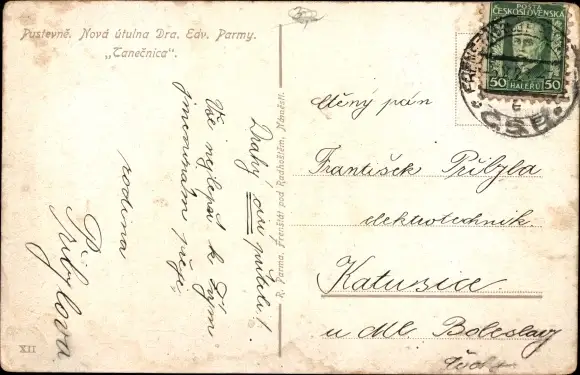 Pustevně. Nová útulna Dra. Edv. Parmy.
„Tanečnica".
Drahý příteli!
Vše nejlepší k Tvým
jmeninám přeje
rodina
Přibylova
R. Parma, Frenštát pod Radhoštěm, Náměstí.
XII
POŠTA
ČESKOSLOVENSKÁ
50 HALÉŘŮ 50
ČSR
Ctěný pán
František Přibyla
elektrotechnik
Katusice
u Ml. Boleslavy
Čechy